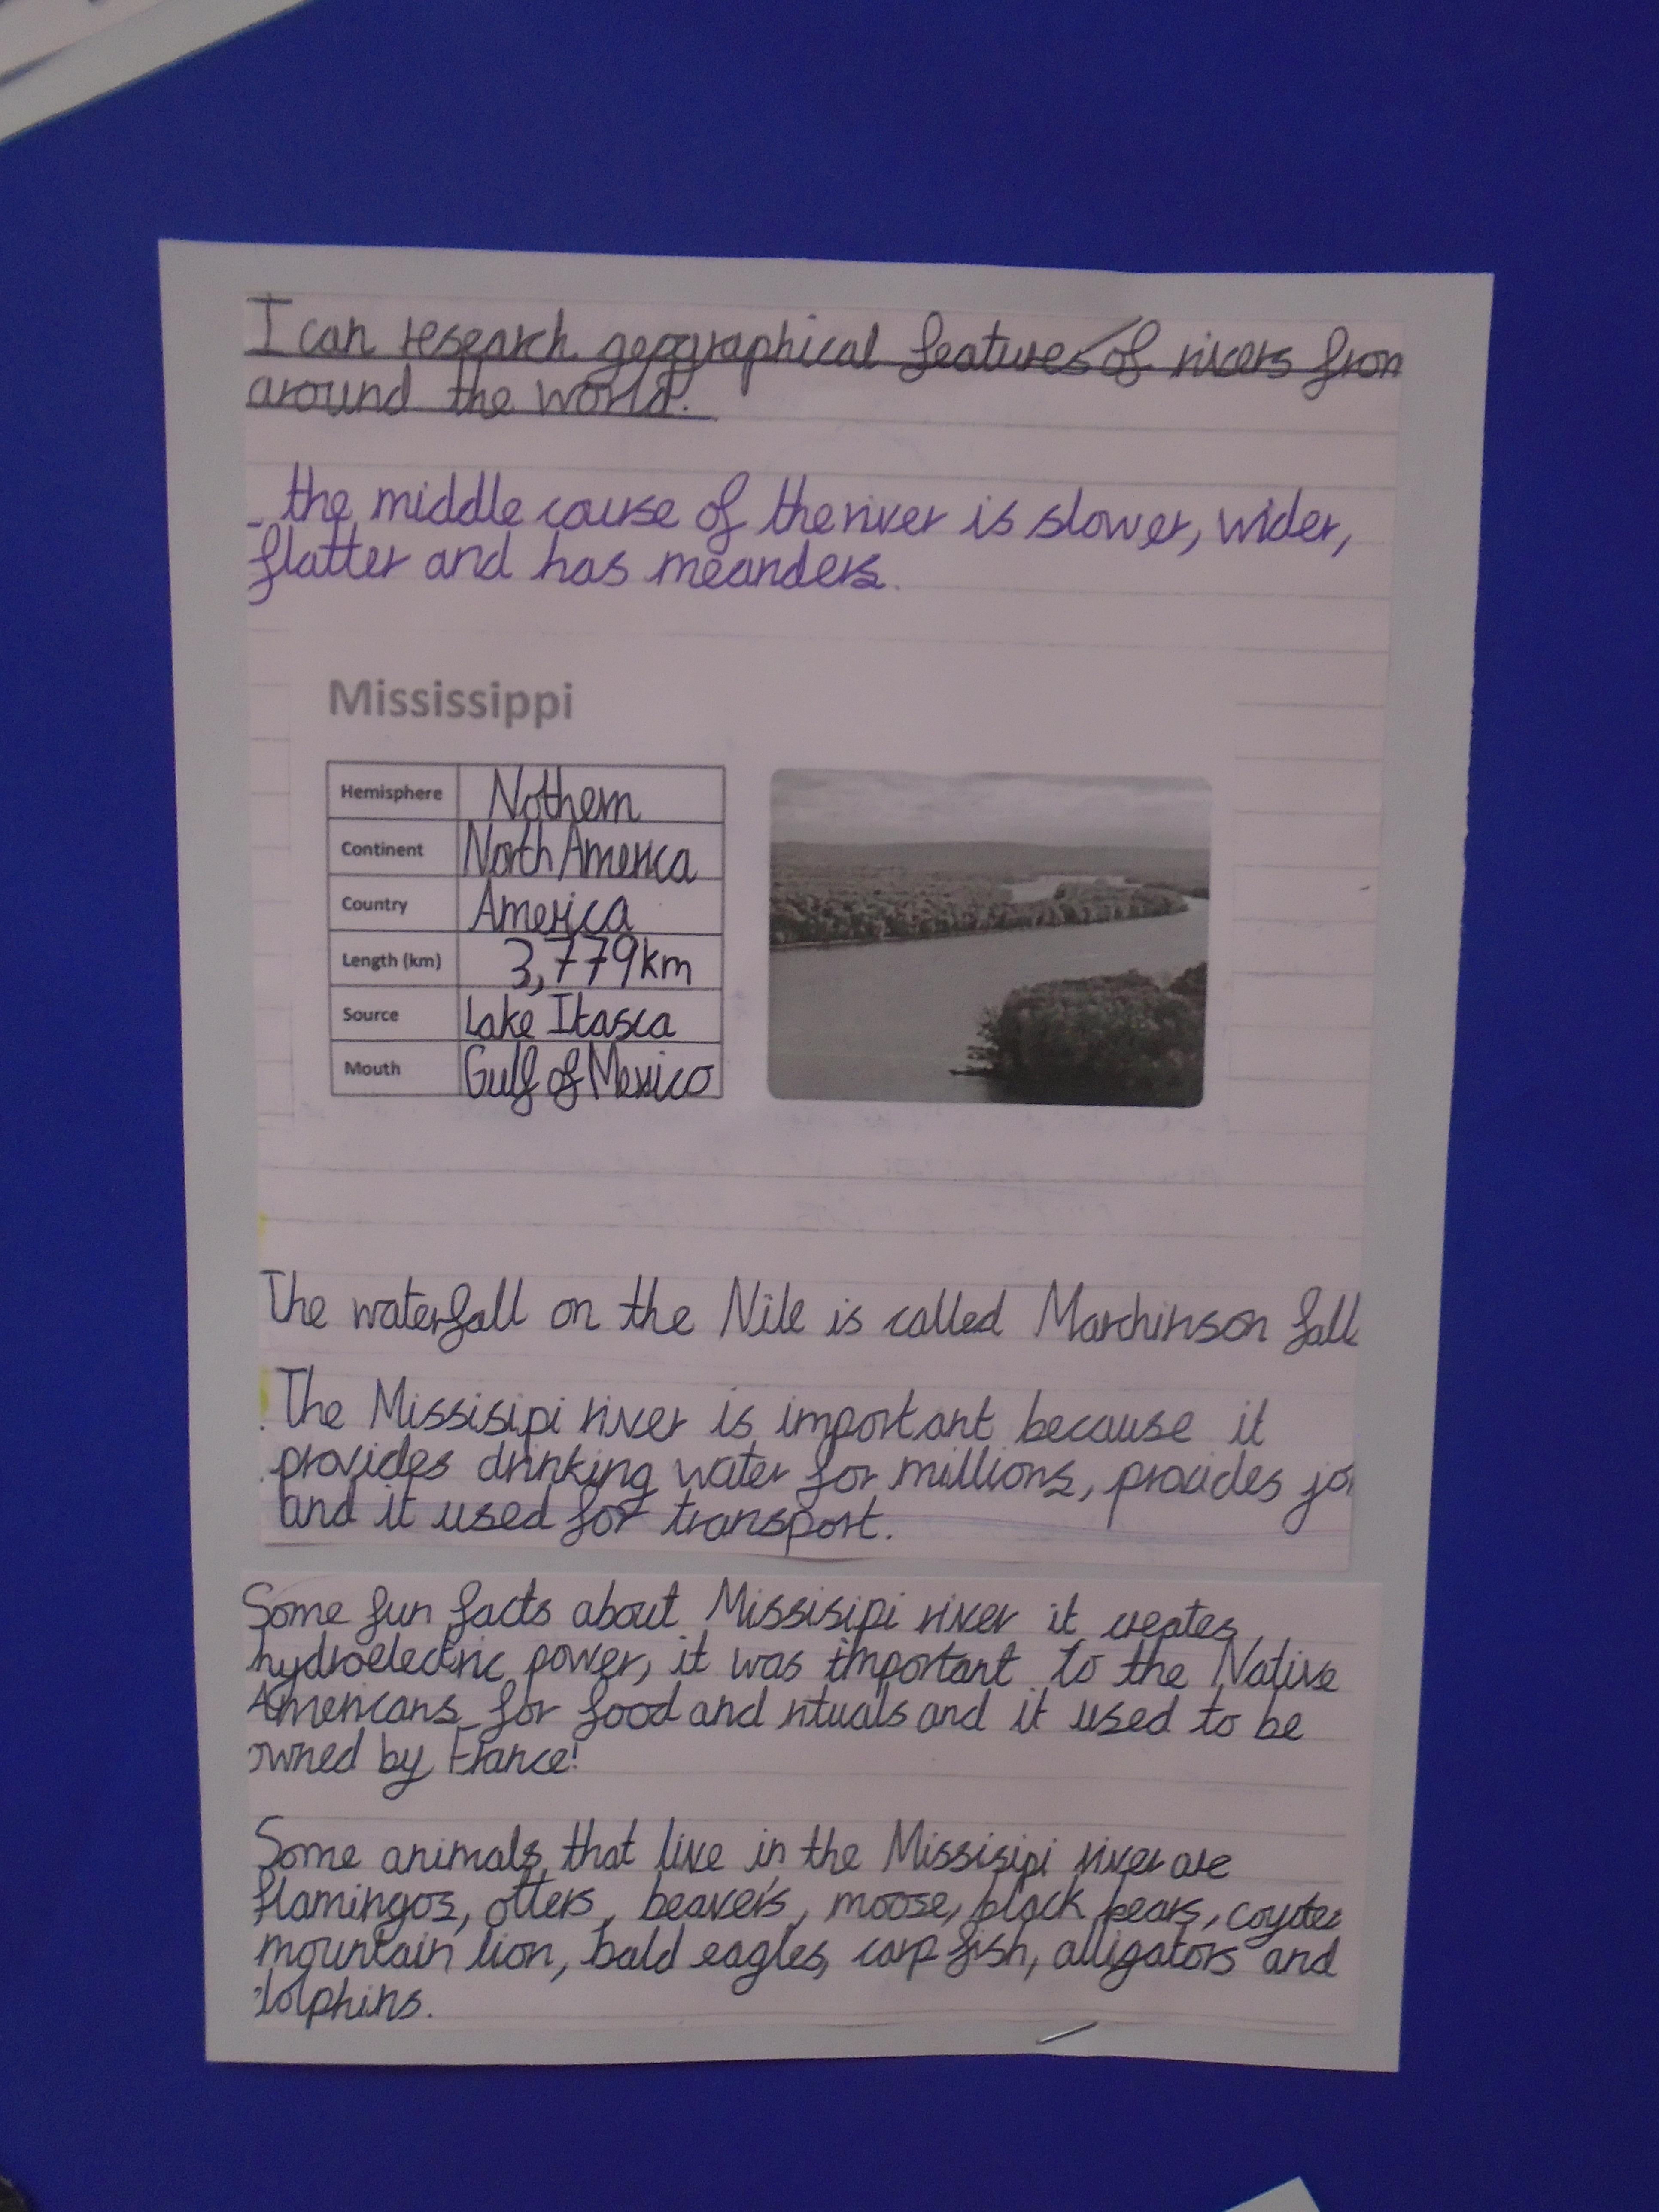 I can research geographical features of rivers from
around the world.
- the middle cource of the river is slower, wider,
flatter and has meanders.
Mississippi
Hemisphere Nothern
Continent North America
Country America
Length (km) 3,779km
Source Lake Itasca
Mouth Gulf of Mexico
The waterfall on the Nile is called Marchinson fall
The Missisipi river is important because it
provides drinking water for millions, provides
and it used for transport.
Some fun facts about Missisipi river it creates
hydroelectric power, it was important to the Native
Americans for food and rituals and it used to be
owned by France!
Some animals that live in the Missisipi river are
flamingos, otters, beavers, moose, black bears, coyotes
mountain lion, bald eagles, carp fish, alligators and
dolphins.